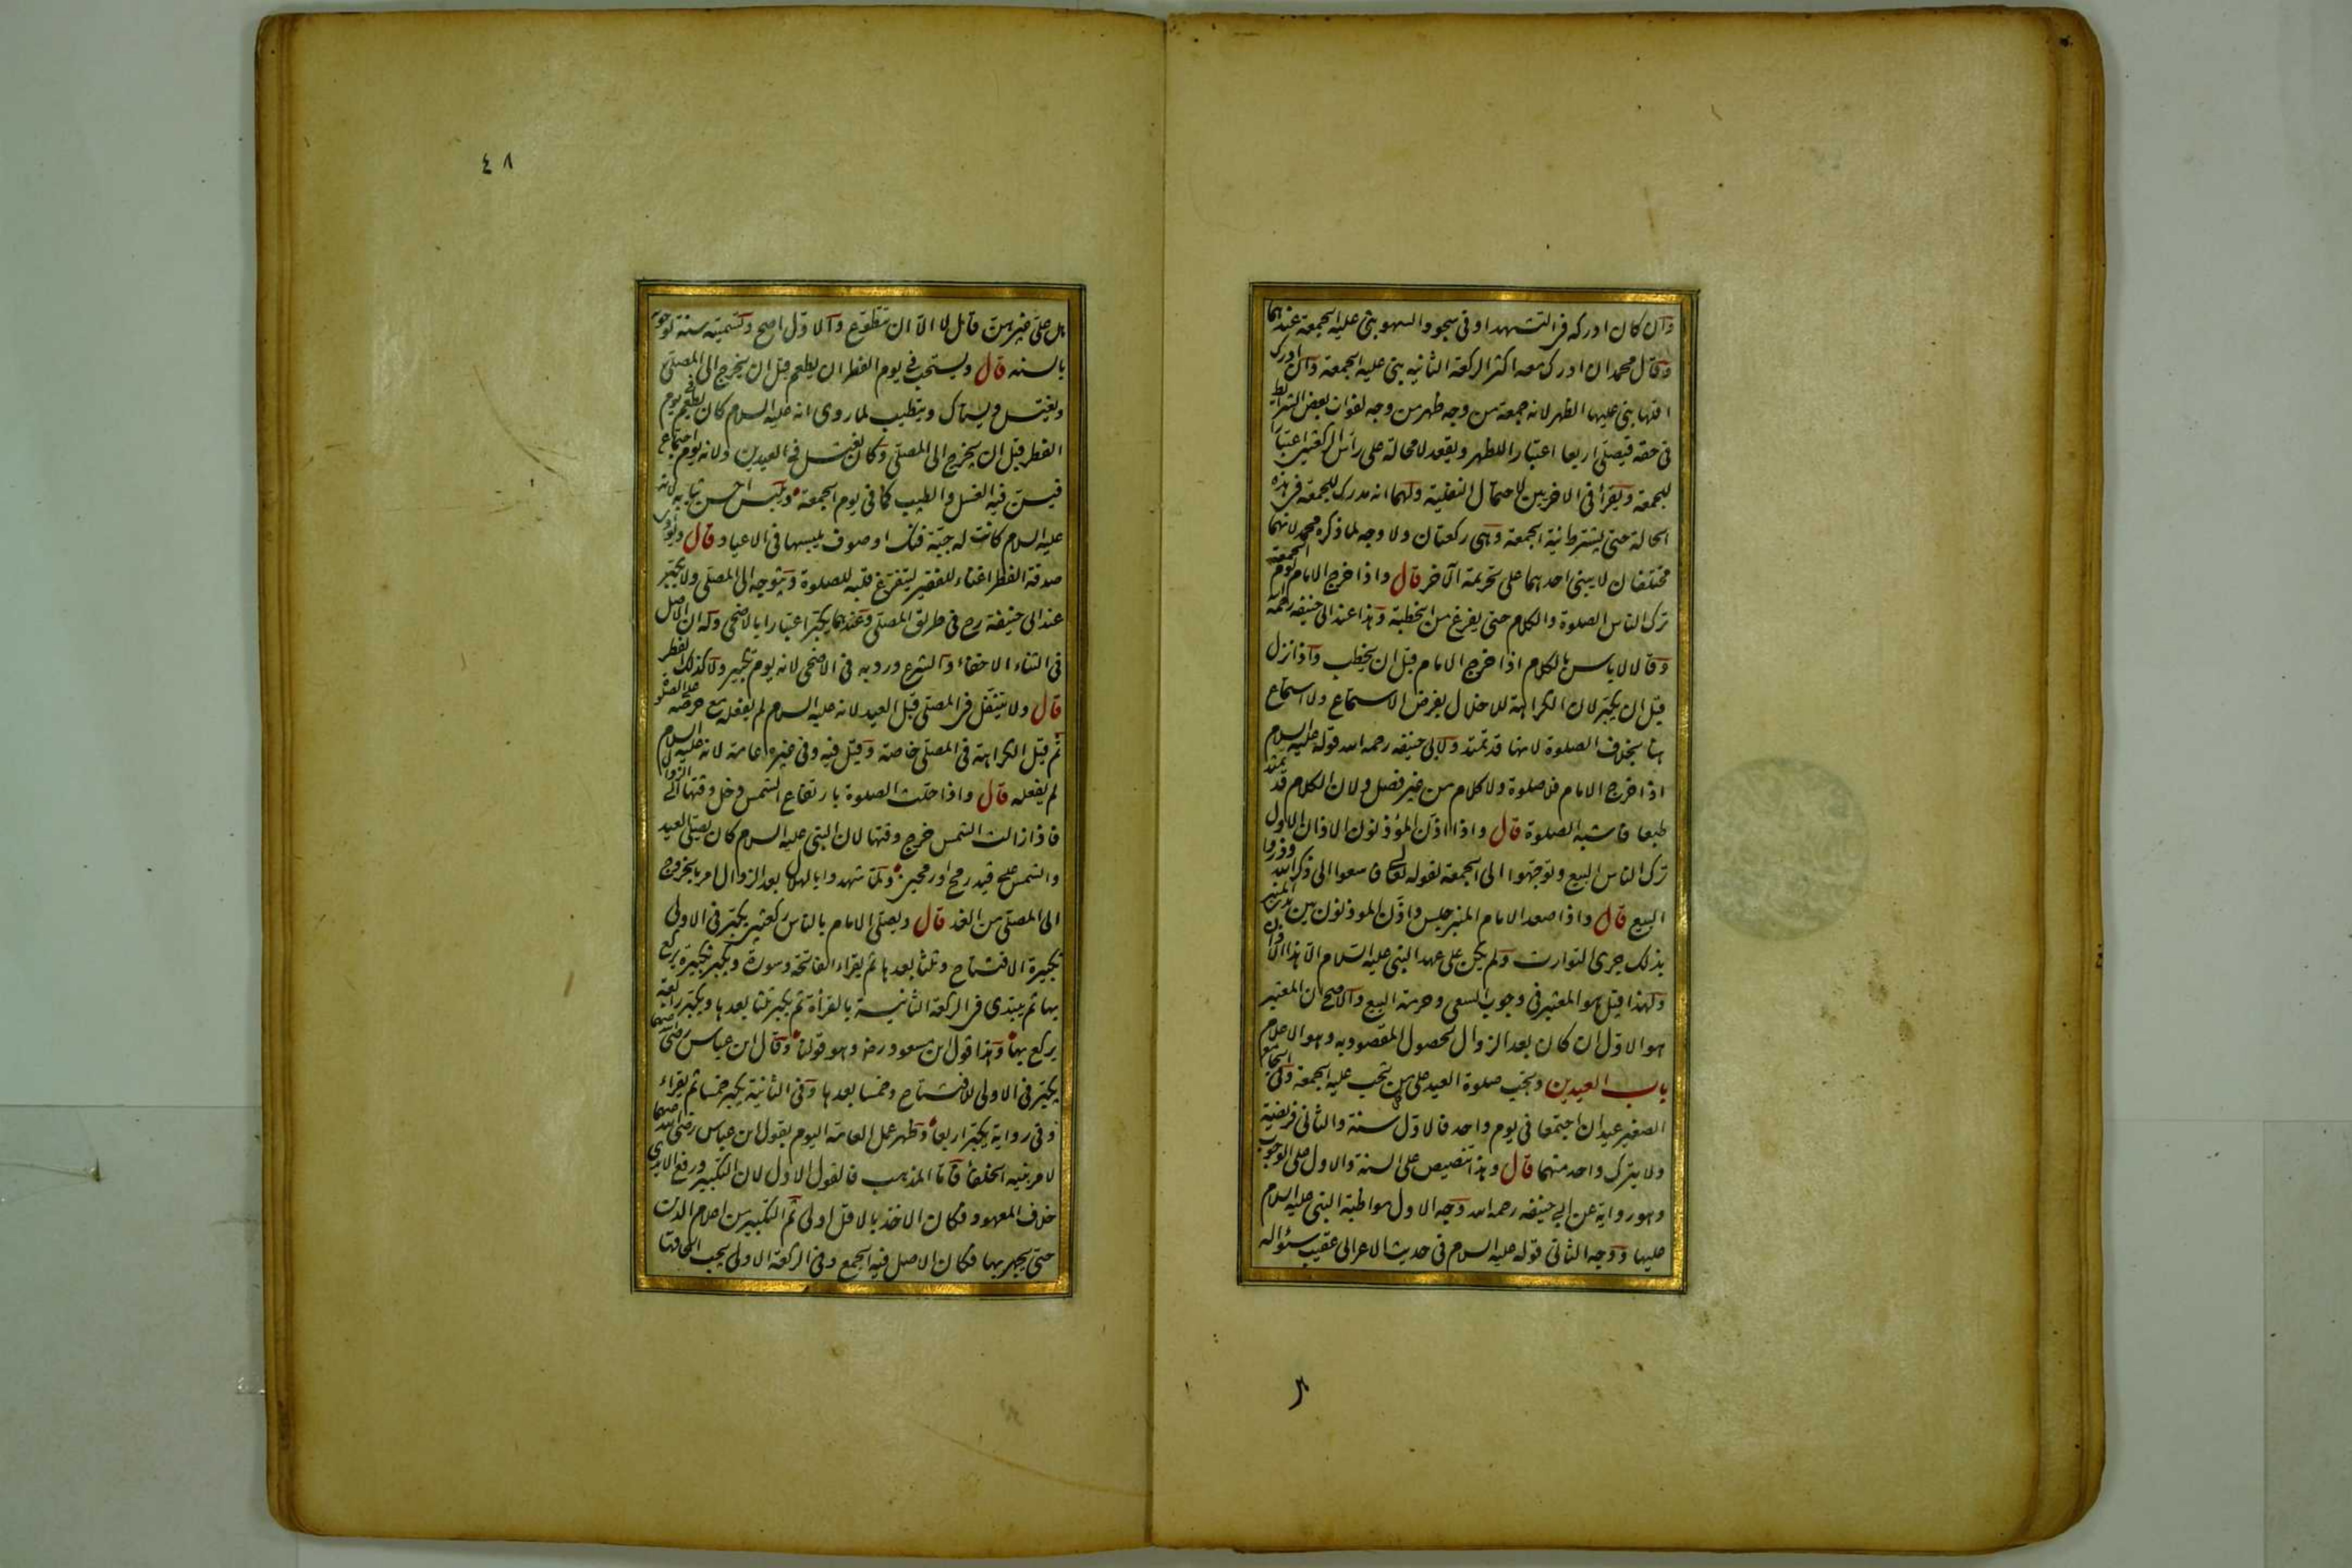 وان كان ادركه فى التشهد او فى سجود السهو بنى عليه الجمعة عندهما
وقال محمد ان ادرك معه اكثر الركعة الثانيه بنى عليه الجمعة وان ادرك
اقلها بنى عليها الظهر لانه جمعة من وجه ظهر من وجه لفوات بعض الشرايط
فى حقه فيصلى اربعا اعتبارا للظهر ويقعد لا محالة على راس الركعتين اعتبارا
للجمعة ويقرأ فى الاخريين لاحتمال النفلية ولهما انه مدرك للجمعة فى هذه
الحالة حتى يشترط نية الجمعة وهى ركعتان ولا وجه لما ذكره محمد لانهما
مختلفان لا يبنى احدهما على تحريمة الآخر قال واذا خرج الامام يوم الجمعة
ترك الناس الصلوة والكلام حتى يفرغ من الخطبة وهذا عند ابى حنيفه رحمه الله
وقالا لا باس بالكلام اذا خرج الامام قبل ان يخطب واذا نزل
قبل ان يكبر لان الكراهة للاخلال بفرض الاستماع ولا استماع
هنا بخلاف الصلوة لانها قد تمتد ولابى حنيفه رحمه الله قوله عليه السلام
اذا خرج الامام فلا صلوة ولا كلام من غير فصل ولان الكلام قد يمتد
طبعا فاشبه الصلوة قال واذا اذن المؤذنون الاذان الاول
ترك الناس البيع وتوجهوا الى الجمعة لقوله تعالى فاسعوا الى ذكر الله وذروا
البيع قال واذا صعد الامام المنبر جلس واذن الموذنون بين يدى المنبر
بذلك جرى التوارث ولم يكن على عهد النبى عليه السلام الا هذا الاذان
ولهذا قيل هو المعتبر فى وجوب السعى وحرمة البيع والاصح ان المعتبر
هو الاول ان كان بعد الزوال لحصول المقصود به وهو الاعلام
باب العيدين وتجب صلوة العيد على من تجب عليه الجمعة وفى الجامع
الصغير عيدان اجتمعا فى يوم واحد فالاول سنة والثانى فريضة
ولا يترك واحد منهما قال وهذا تنصيص على السنة والاول على الوجوب
وهو رواية عن ابى حنيفه رحمه الله وجه الاول مواظبة النبى عليه السلام
عليها ووجه الثانى قوله عليه السلام فى حديث الاعرابى عقيب سؤاله
٤٨
هل على غيرهن قال لا الا ان تطوع والاول اصح وتسميته سنة لوجوبه
بالسنه قال ويستحب فى يوم الفطر ان يطعم قبل ان يخرج الى المصلى
ويغتسل ويستاك ويتطيب لما روى انه عليه السلام كان يطعم فى يوم
الفطر قبل ان يخرج الى المصلى وكان يغتسل فى العيدين ولانه يوم اجتماع
فيسن فيه الغسل والطيب كما فى يوم الجمعة ويلبس احسن ثيابه لانه
عليه السلام كانت له جبة فنك او صوف يلبسها فى الاعياد قال ويؤدى
صدقة الفطر اغناء للفقير ليتفرغ قلبه للصلوة ويتوجه الى المصلى ولا يكبر
عند ابى حنيفة رح فى طريق المصلى وعندهما يكبر اعتبارا بالاضحى وله ان الاصل
فى الثناء الاخفاء والشرع ورد به فى الاضحى لانه يوم تكبير ولا كذلك الفطر
قال ولا يتنفل فى المصلى قبل العيد لانه عليه السلام لم يفعله مع حرصه على الصلوة
ثم قيل الكراهة فى المصلى خاصة وقيل فيه وفى غيره عامة لانه عليه السلام
لم يفعله قال واذا حلت الصلوة بارتفاع الشمس دخل وقتها الى الزوال
فاذا زالت الشمس خرج وقتها لان النبى عليه السلام كان يصلى العيد
والشمس على قيد رمح او رمحين ولما شهدوا بالهلال بعد الزوال امر بالخروج
الى المصلى من الغد قال ويصلى الامام بالناس ركعتين يكبر فى الاولى
تكبيرة الافتتاح وثلثا بعدها ثم يقراء الفاتحة وسورة ويكبر تكبيرة يركع
بها ثم يبتدى فى الركعة الثانية بالقرأة ثم يكبر ثلثا بعدها ويكبر رابعة
يركع بها وهذا قول ابن مسعود رضه وهو قولنا وقال ابن عباس رضى الله عنهما
يكبر فى الاولى للافتتاح وخمسا بعدها وفى الثانية يكبر خمسا ثم يقراء
وفى رواية يكبر اربعا وظهر عمل العامة اليوم بقول ابن عباس رضى الله عنهما
لامر بنيه الخلفا فاما المذهب فالقول الاول لان التكبير ورفع الايدى
خلاف المعهود فكان الاخذ بالاقل اولى ثم التكبير من اعلام الدين
حتى يجهر بها فكان الاصل فيه الجمع وفى الركعة الاولى يجب الحاقها